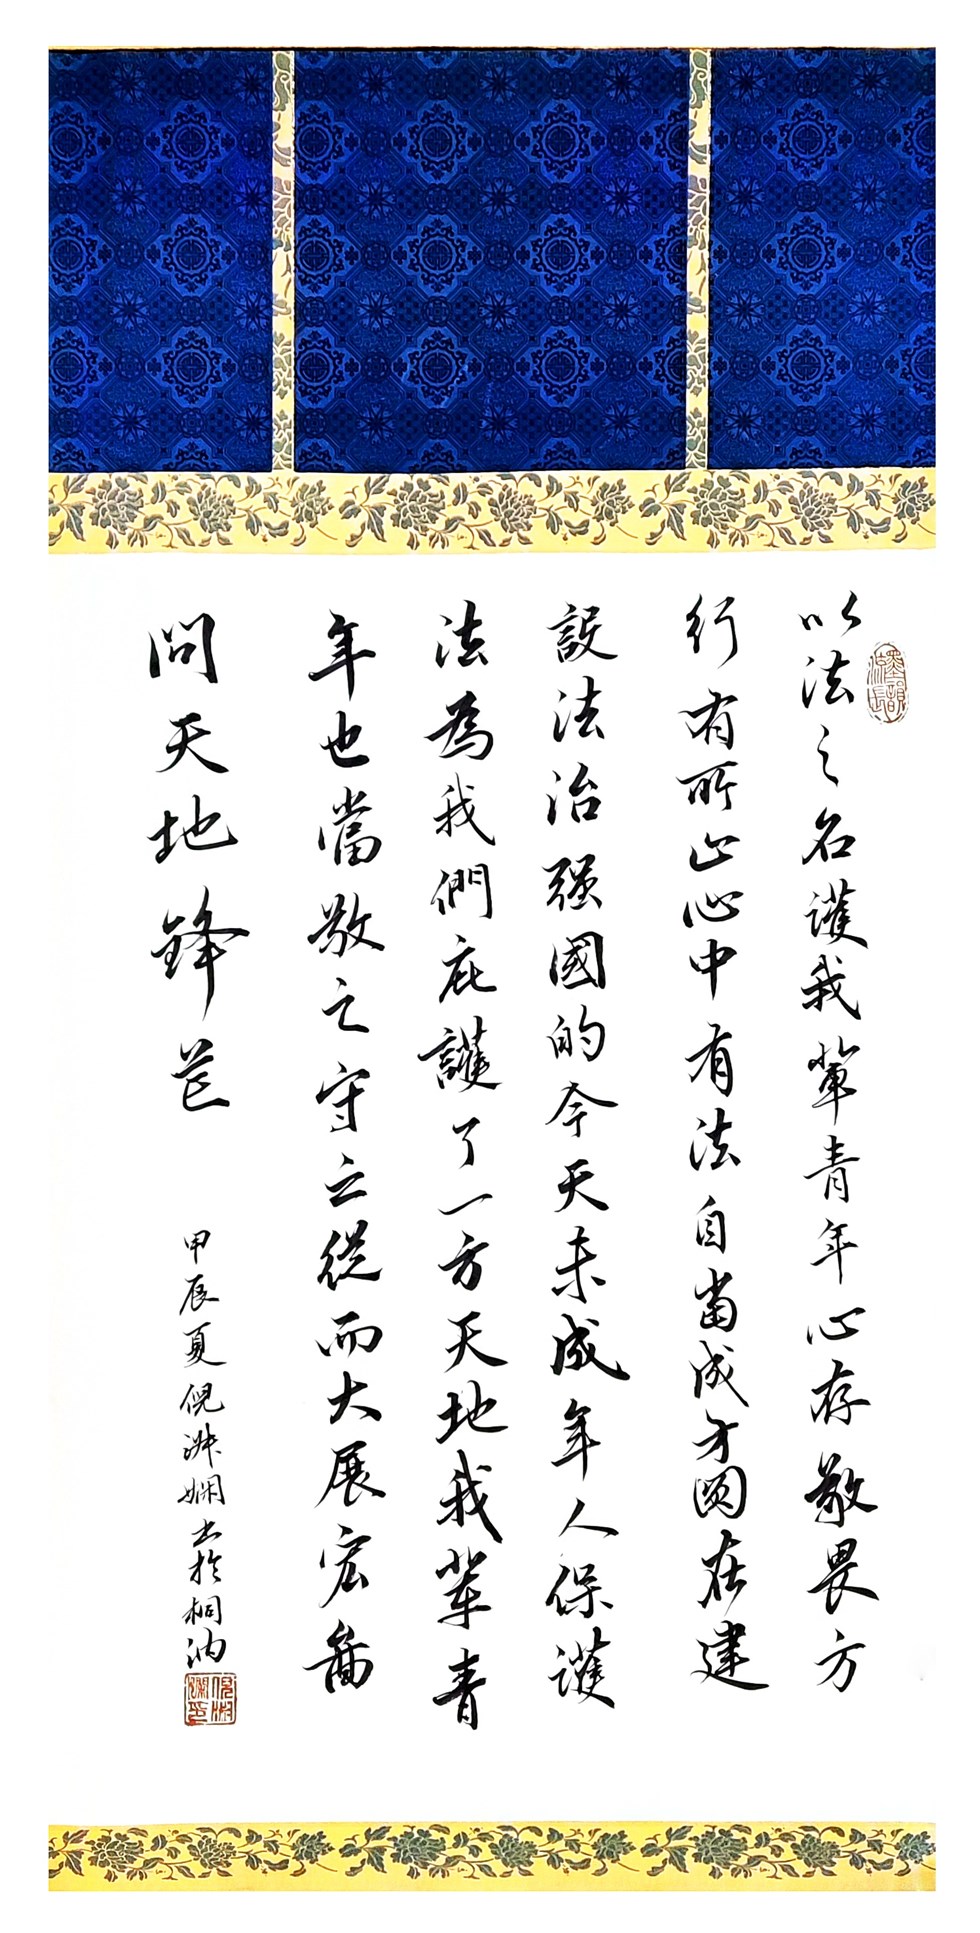 以法之名護我輩青年心存敬畏方
行有所止心中有法自當成方圓在建
設法治强國的今天未成年人保護
法為我們庇護了一方天地我輩青
年也當敬之守之從而大展宏啚
問天地鋒芒
甲辰夏倪淋嫻书於桐汭